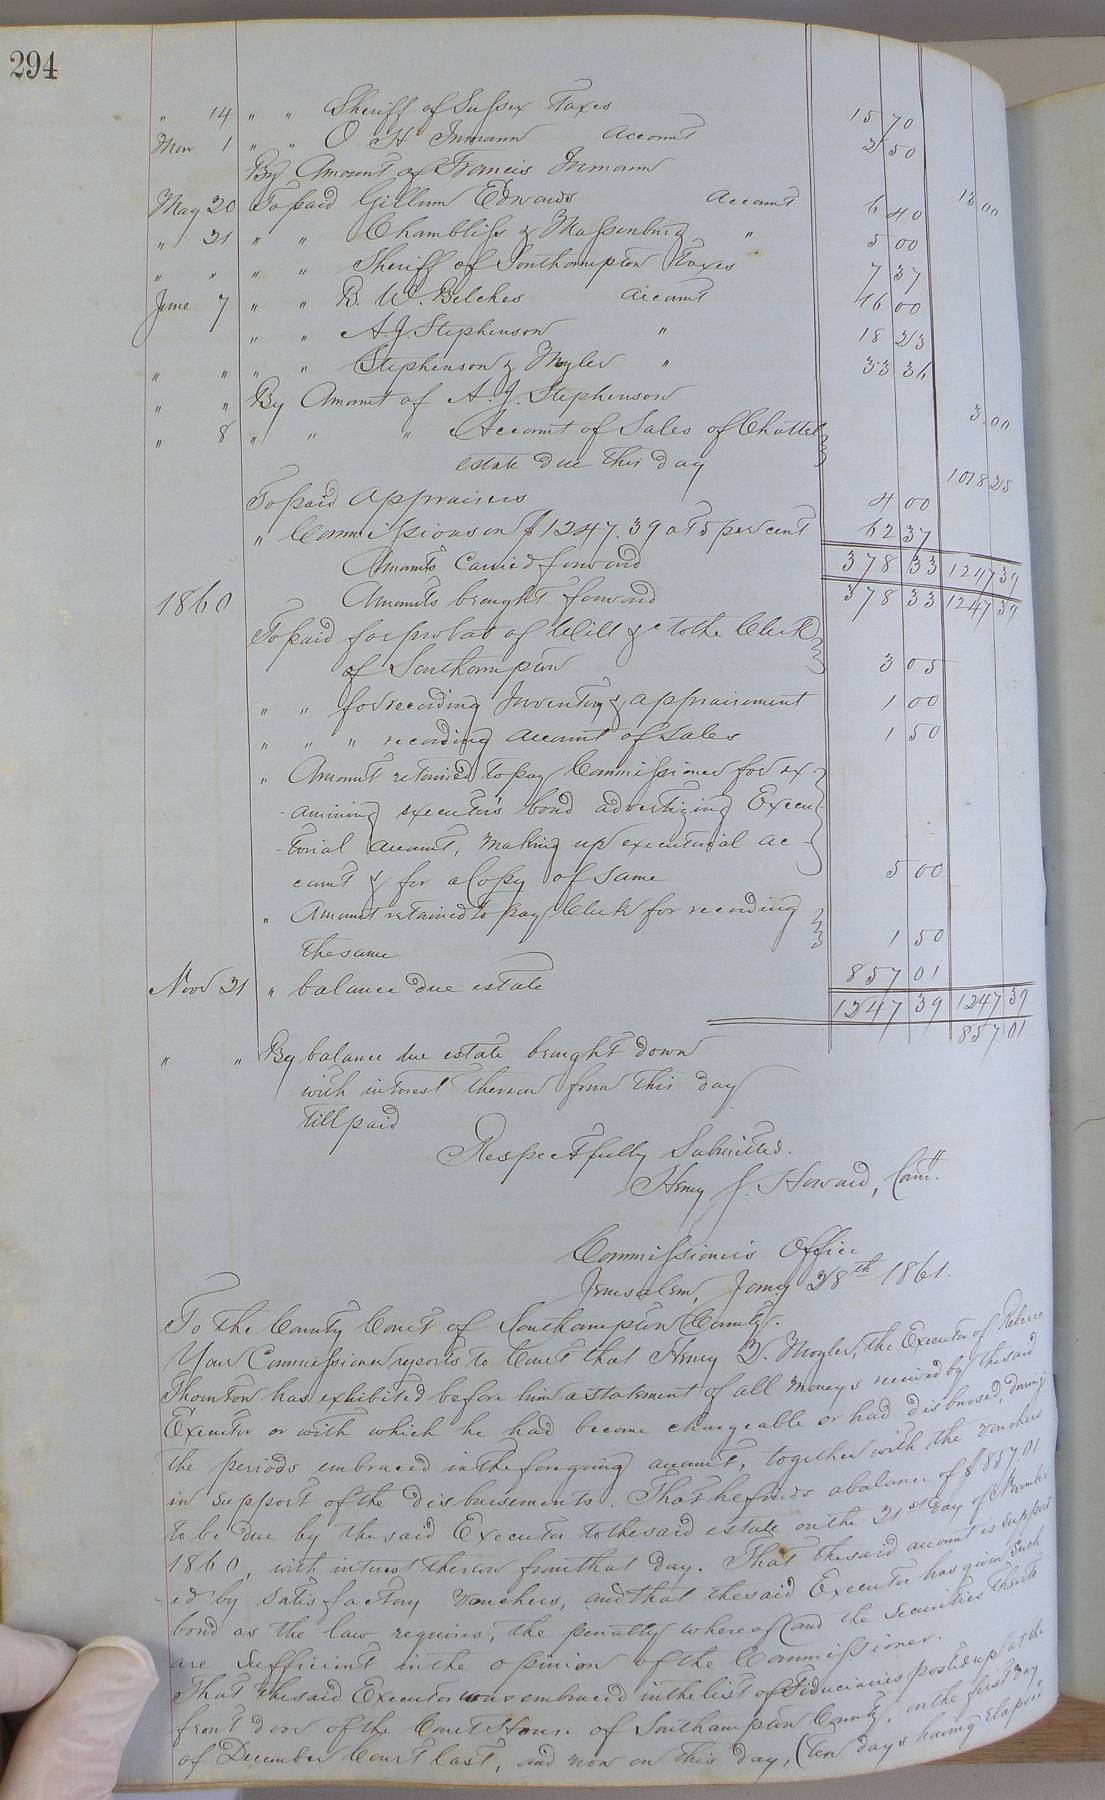 294
" 14 " " Sheriff of Sussex Taxes 15 70
Mar 1 " " O H Inmann Account 2 50
By Amount of Francis Inmann 13 00
May 20 To paid Gillum Edwards Account 6 40
" 21 " " Chambliss & Massenburg " 5 00
" " " " Sheriff of Southampton Taxes 7 37
June 7 " " B. W. Belches account 16 00
" " A. J. Stephenson " 18 23
" " " " Stephenson & Mogler " 33 36
" " By Amount of A. J. Stephenson 3.00
" 8 " " " Account of Sales of Chattel
estate due this day 1018 25
To paid Appraisers 4 00
" Commissions on $1247.39 at 5 per cent 62 37
Amounts Carried forward 378 33 1247 39
1860 Amounts brought forward 378 33 1247 39
To paid for probat of Will &c to the Clerk
of Southampton 3 05
" " for recording Inventory & appraisement 1 00
" " " recording account of Sales 1 50
" Amount retained to pay Commissioner for ex-
-amining executors bond advertizing Execu-
-torial account, making up executorial ac-
count & for a Copy of same 5 00
" Amount retained to pay Clerk for recording
the same 1 50
Novr 21 " balance due estate 857 01
1247 39 1247 39
" " By balance due estate brought down 857 01
with interest thereon from this day
till paid
Respectfully Submitted.
Henry J. Howard, Comr.
Commissioner's Office
Jerusalem, Jany 28th 1861.
To the County Court of Southampton County.
Your Commissioner reports to Court that Henry D. Mogler, the Executor of Rebecca
Thornton has exhibited before him a statement of all moneys received by the said
Executor or with which he had become chargeable or had disbursed, during
the periods embraced in the foregoing account, together with the vouchers
in support of the disbursements. That he finds a balance of $857.01
to be due by the said Executor to the said estate on the 21st day of November
1860, with interest thereon from that day. That the said account is support
-ed by satisfactory vouchers, and that the said Executor has given such
bond as the law requires, the penalty whereof and the securities thereto
are sufficient in the opinion of the Commissioner.
That the said Executor was embraced in the list of Fiduciaries posted up at the
front door of the Court House of Southampton County, on the first day
of December Court last, and now on this day, (ten days having elapsed